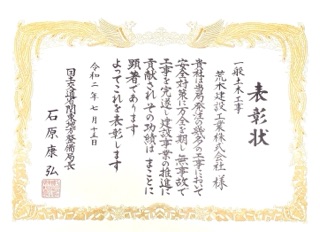 表彰状
一般土木工事
荒木建設工業株式会社 様
貴社は当局発注の幾多の工事において
安全対策に万全を期し無事故で
工事を完遂し建設事業の推進に
貢献されその功績はまことに
顕著であります
よってこれを表彰します
令和二年七月十三日
国土交通省関東地方整備局長
石原康弘